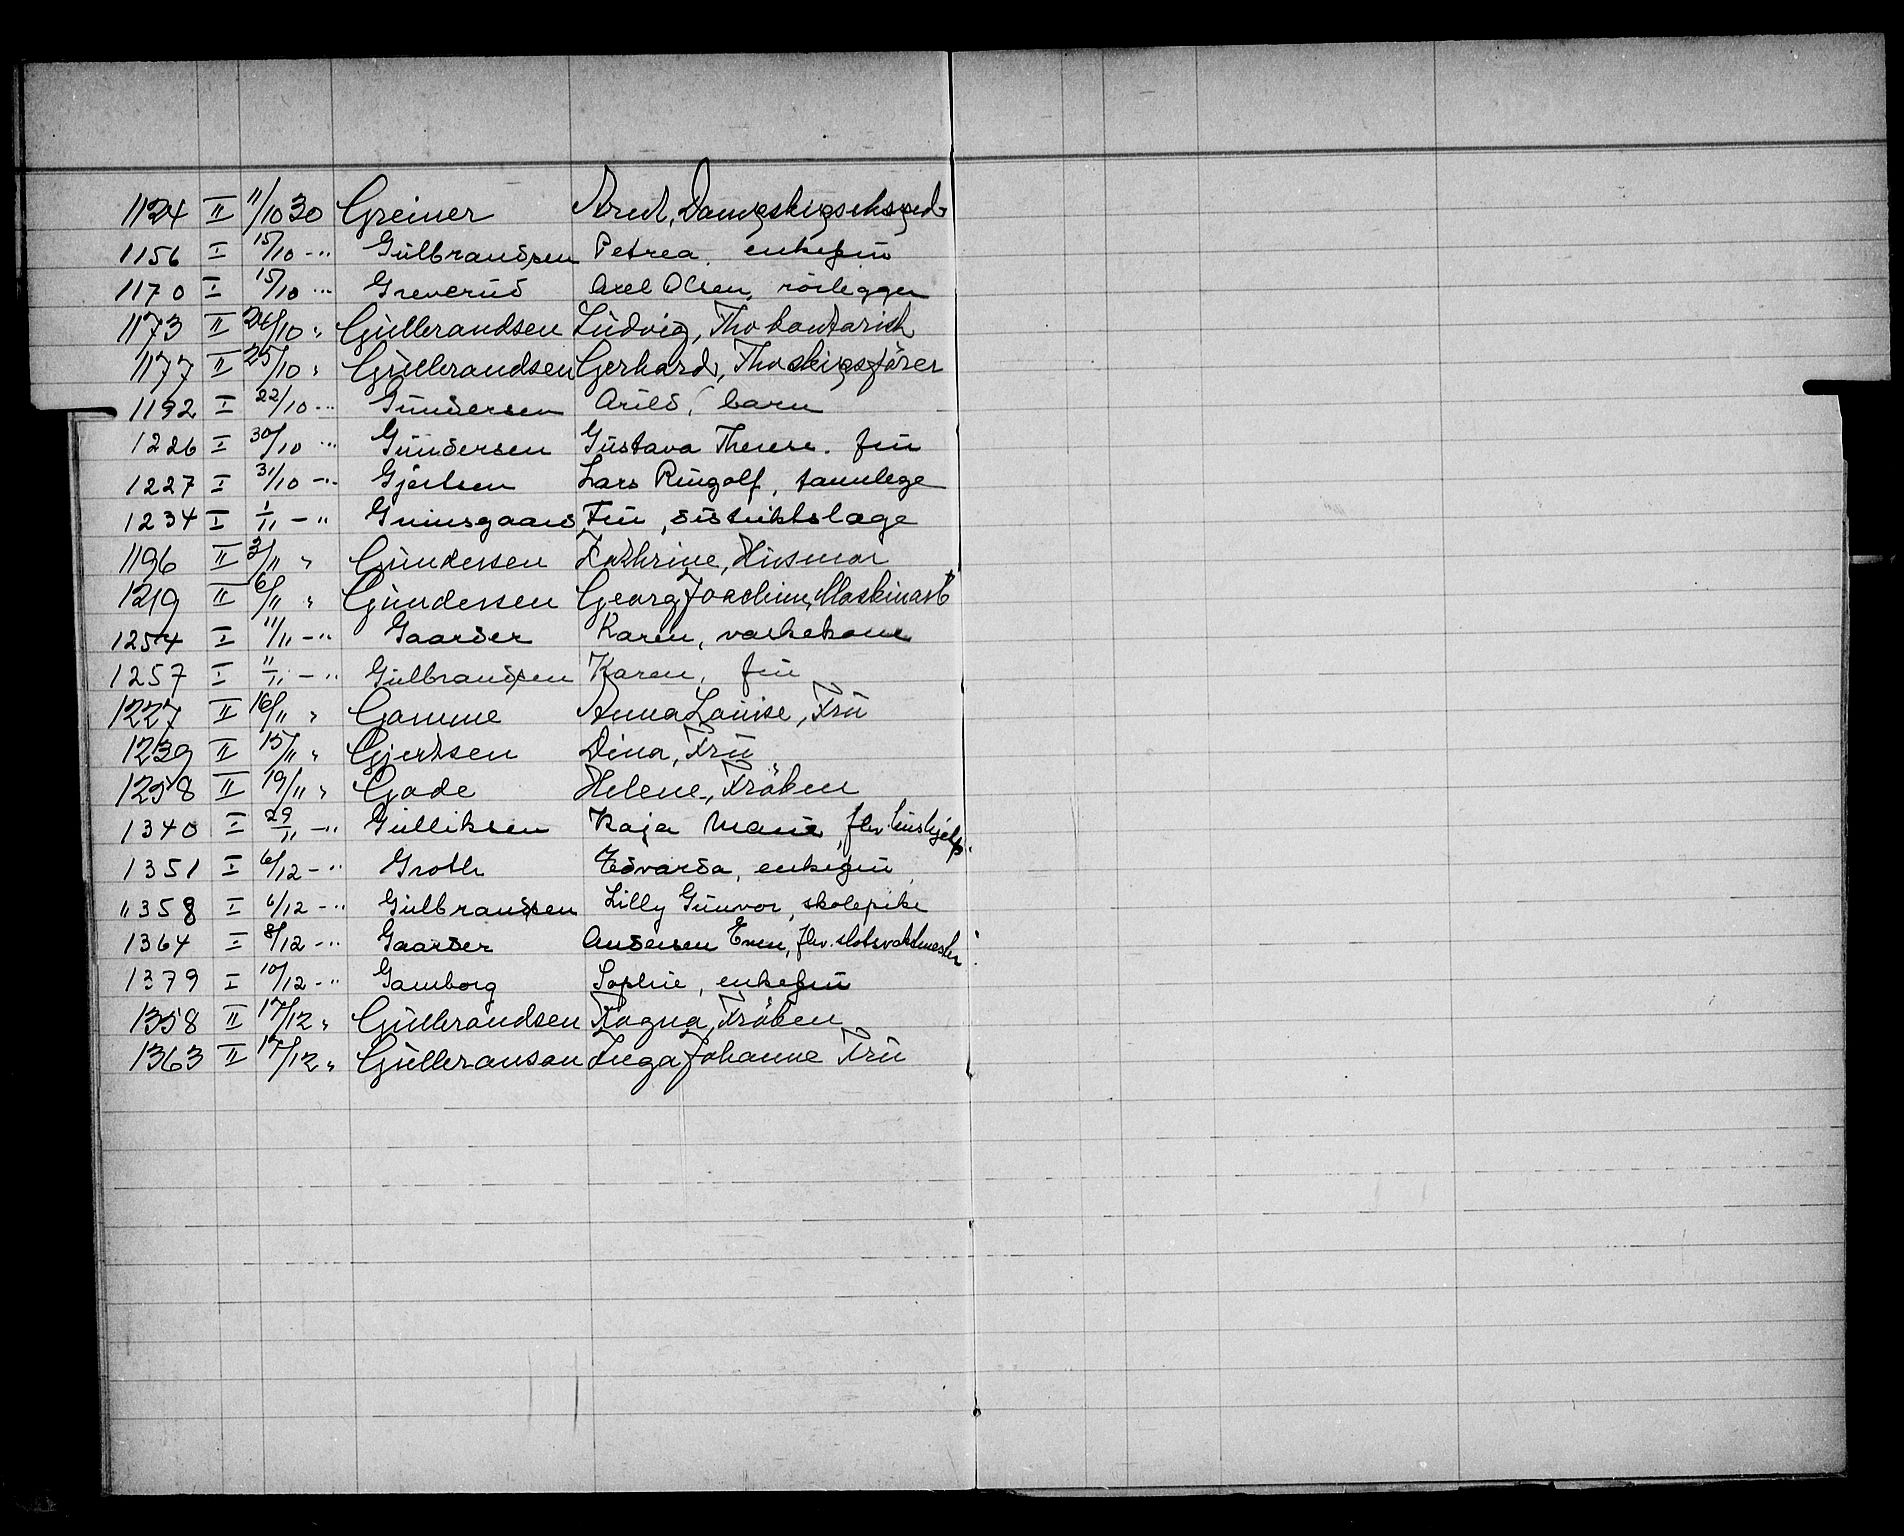 1124 II 11/10 30 Greiner Arent, Dampskipseksped.
1156 I 15/10 -"- Gulbrandsen Petrea, enkefru
1170 I 15/10 -"- Greverud Axel Olsen, rörlegger
1173 II 26/10 " Gullbrandsen Ludvig, Fhv kontorist
1177 II 25/10 " Gullbrandsen Gerhard, Fhv skipsförer
1192 I 22/10 -"- Gundersen Arild, barn
1226 I 30/10 -"- Gundersen Gustava Therese. fru
1227 I 31/10 -"- Gjertsen Lars Ringolf, tannlege
1234 I 1/11 -"- Grimsgaard Finn, distriktslæge
1196 II 3/11 " Gundersen Kathrine, Husmor
1219 II 6/11 " Gundersen Georg Joachim, Maskinarb
1254 I 11/11 -"- Gaarder Karen, vaskekone
1257 I 11/11 -"- Gulbrandsen Karen, fru
1227 II 16/11 " Gamme Anna Louise, Fru
1239 II 15/11 " Gjertsen Dina, Fru
1258 II 19/11 " Gade Helene, Fröken
1340 I 29/11 -"- Gulliksen Kaja Marie, fhv. hushjelp.
1351 I 6/12 -"- Groth Edvarda, enkefru
1358 I 6/12 -"- Gulbrandsen Lilly Gunvor, skolepike
1364 I 8/12 -"- Gaarder Andersen Even, fhv. slotsvaktmester
1379 I 10/12 -"- Gamborg Sophie, enkefru
1358 II 17/12 " Gullbrandsen Ragna, Fröken
1363 II 17/12 " Gullbransen Inga Johanne Fru